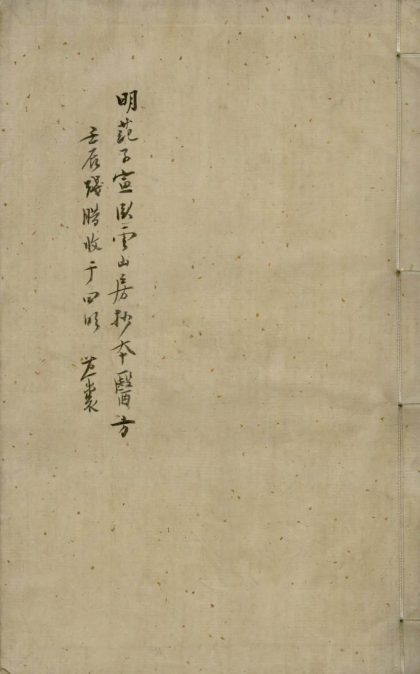 明范子宣臥雲山房抄本醫方
壬辰殘臘收于四明